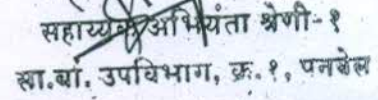 सहाय्यक अभियंता श्रेणी-१
सा.बां. उपविभाग, क्र.१, पनवेल